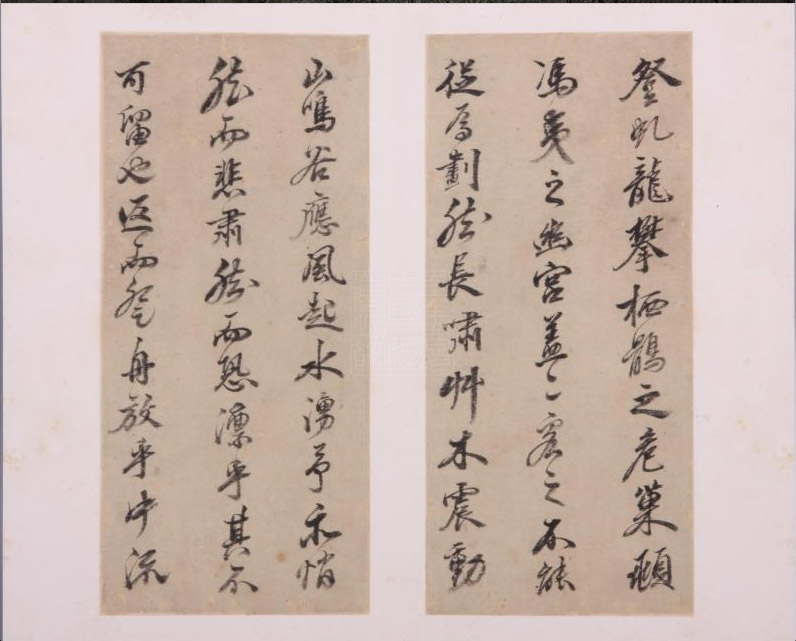 登虬龍攀栖鶻之危巢頫
馮夷之幽宮蓋二客之不能
從焉劃然長嘯艸木震動
山鳴谷應風起水湧予亦悄
然而悲肅然而恐凛乎其不
可留也返而登舟放乎中流